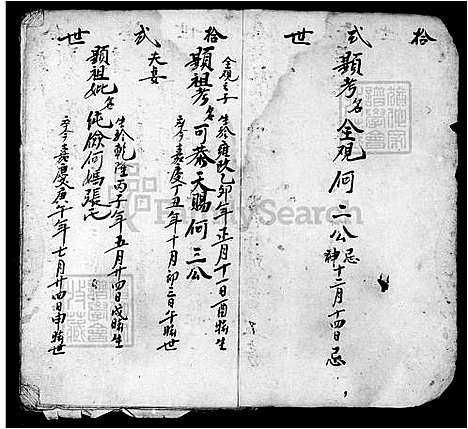 拾弍世
顯考名全觀何二公忌神十二月十四日忌
拾弍世
全觀之子
顯祖考名可恭天賜何三公
生於雍正乙卯年正月十一日酉時生
卒于嘉慶丁丑年十月初三日午時世
夫妻
顯祖妣名純儉何媽張氏
生於乾隆丙子年五月廿四日戌時生
卒于嘉慶庚午年七月廿四日申時世
FamilySearch